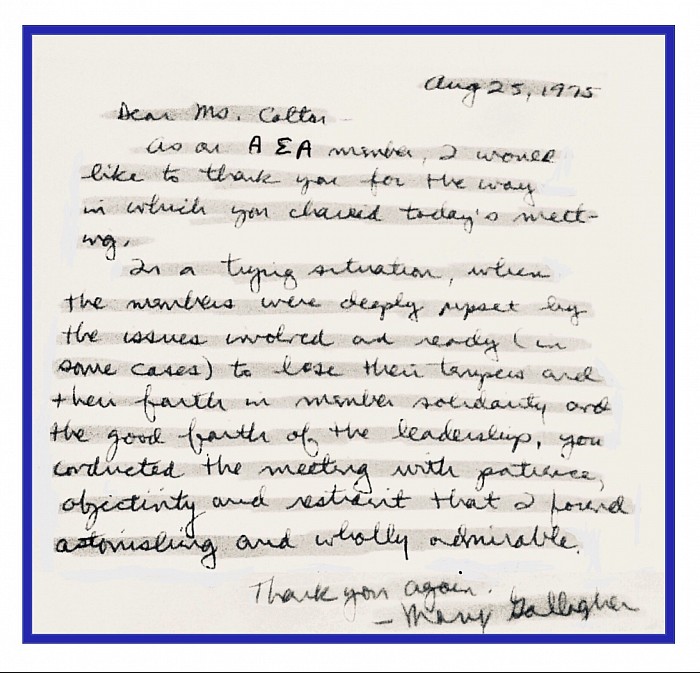 Aug 25, 1975
Dear Ms. Colton
As an AEA member, I would
like to thank you for the way
in which you chaired today's meet-
ing.
In a trying situation, when
the members were deeply upset by
the issues involved and ready (in
some cases) to lose their tempers and
their faith in member solidarity and
the good faith of the leadership, you
conducted the meeting with patience,
objectivity and restraint that I found
astonishing and wholly admirable.
Thank you again.
- Mary Gallagher